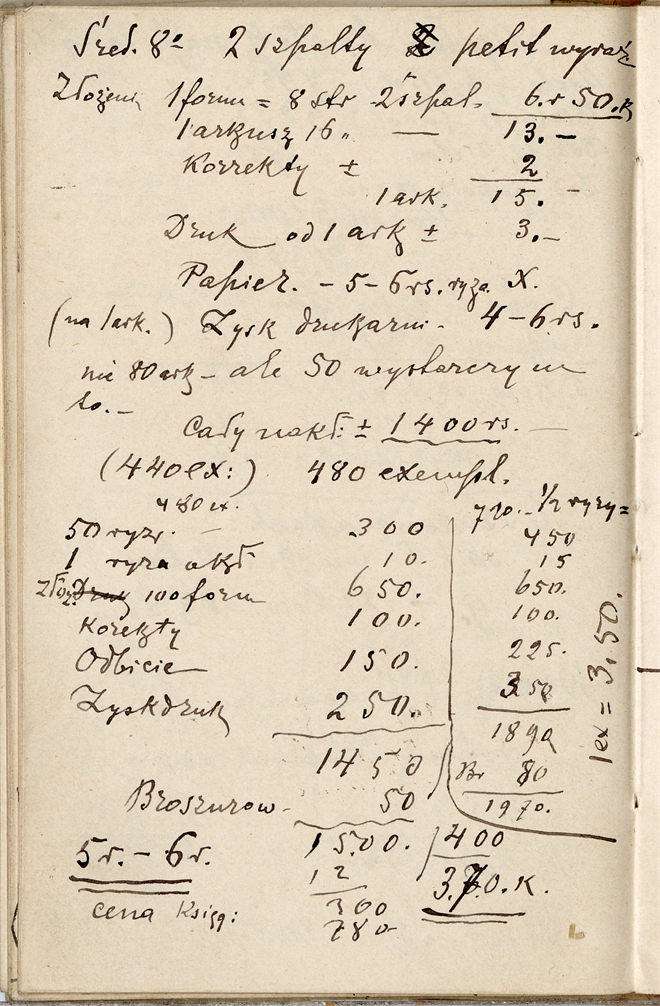 Śred. 8º 2 szpalty petit wyraź.
Złożenie 1 form = 8 str 2 szpal. 6.r 50.k
1 arkusz 16 „ — 13. –
Korrekty ± 2
1 ark. 15. –
Druk od 1 ark ± 3. –
Papier. – 5 – 6 rs. ryza X.
(na 1 ark.) Zysk drukarni. 4 – 6 rs.
nie 80 ark – ale 50 wystarczy na
to. –
Cały nakł: ± 1400 rs. —
(440 ex:) 480 exempl.
480 ex.
720. ½ ryzy =
50 ryz. 300 450
1 ryza okł 10. 15
Złoż. Druk 100 form 650. 650.
Korekty 100. 100.
Odbicie 150. 225.
Zysk druk 250. 350
1450 1890
Br 80
Broszurow. 50 1970.
1 ex = 3,50.
5 r. – 6 r. 1500. 400
12 3.70.K.
cena Księg: 300
780